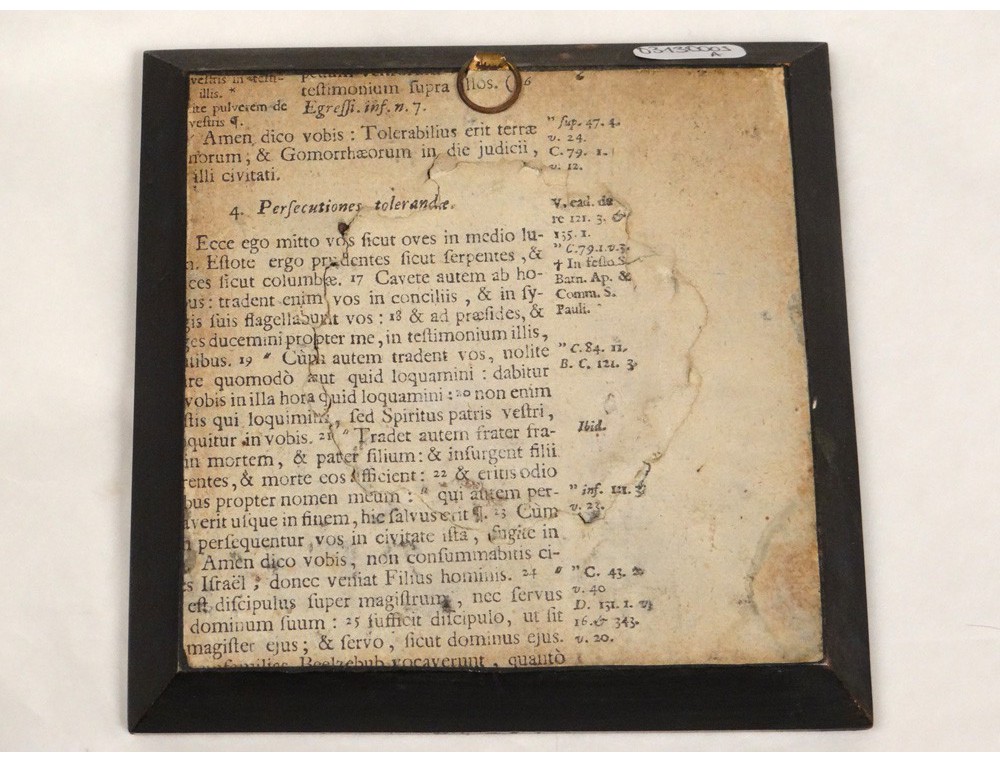 D3130003
A
vestris in testi-
illis. *
ite pulverem de
vestris ¶.
testimonium supra illos. ( 6
Egressi. inf. n. 7.
Amen dico vobis : Tolerabilius erit terræ
norum ; & Gomorrhæorum in die judicii ,
illi civitati.
" sup. 47. 4.
v. 24.
C. 79. 1.
v. 12.
4. Persecutiones tolerandæ.
Ecce ego mitto vos ſicut oves in medio lu-
n. Eſtote ergo prudentes ſicut ſerpentes , &
ces ſicut columbæ. 17 Cavete autem ab ho-
us : tradent enim vos in conciliis , & in ſy-
gis ſuis flagellabunt vos : 18 & ad præſides, &
es ducemini propter me, in teſtimonium illis,
tibus. 19 " Cùm autem tradent vos, nolite
re quomodò aut quid loquamini : dabitur
vobis in illa hora quid loquamini : 20 non enim
ſtis qui loquimini, ſed Spiritus patris veſtri,
quitur in vobis. 21 " Tradet autem frater fra-
in mortem, & pater filium : & inſurgent filii
rentes, & morte eos afficient : 22 & eritis odio
bus propter nomen meum : " qui autem per-
averit uſque in finem, hic ſalvus erit ¶. 23 Cùm
persequentur vos in civitate iſta , fugite in
Amen dico vobis, non conſummabitis ci-
s Iſraël , donec veniat Filius hominis. 24 "
eſt diſcipulus ſuper magiſtrum , nec ſervus
dominum ſuum : 25 ſufficit diſcipulo, ut ſit
magiſter ejus ; & ſervo , ſicut dominus ejus.
familias Beelzebub vocaverunt , quantò
V. ead. de
re 121. 3. &
135. 1.
" C. 79. 1. v. 3.
† In feſto S.
Barn. Ap. &
Comm. S.
Pauli.
" C. 84. 11.
B. C. 121. 3.
Ibid.
" inf. 121. 3
v. 23.
" C. 43. 2
v. 40
D. 131. 1. v.
16. & 343.
v. 20.